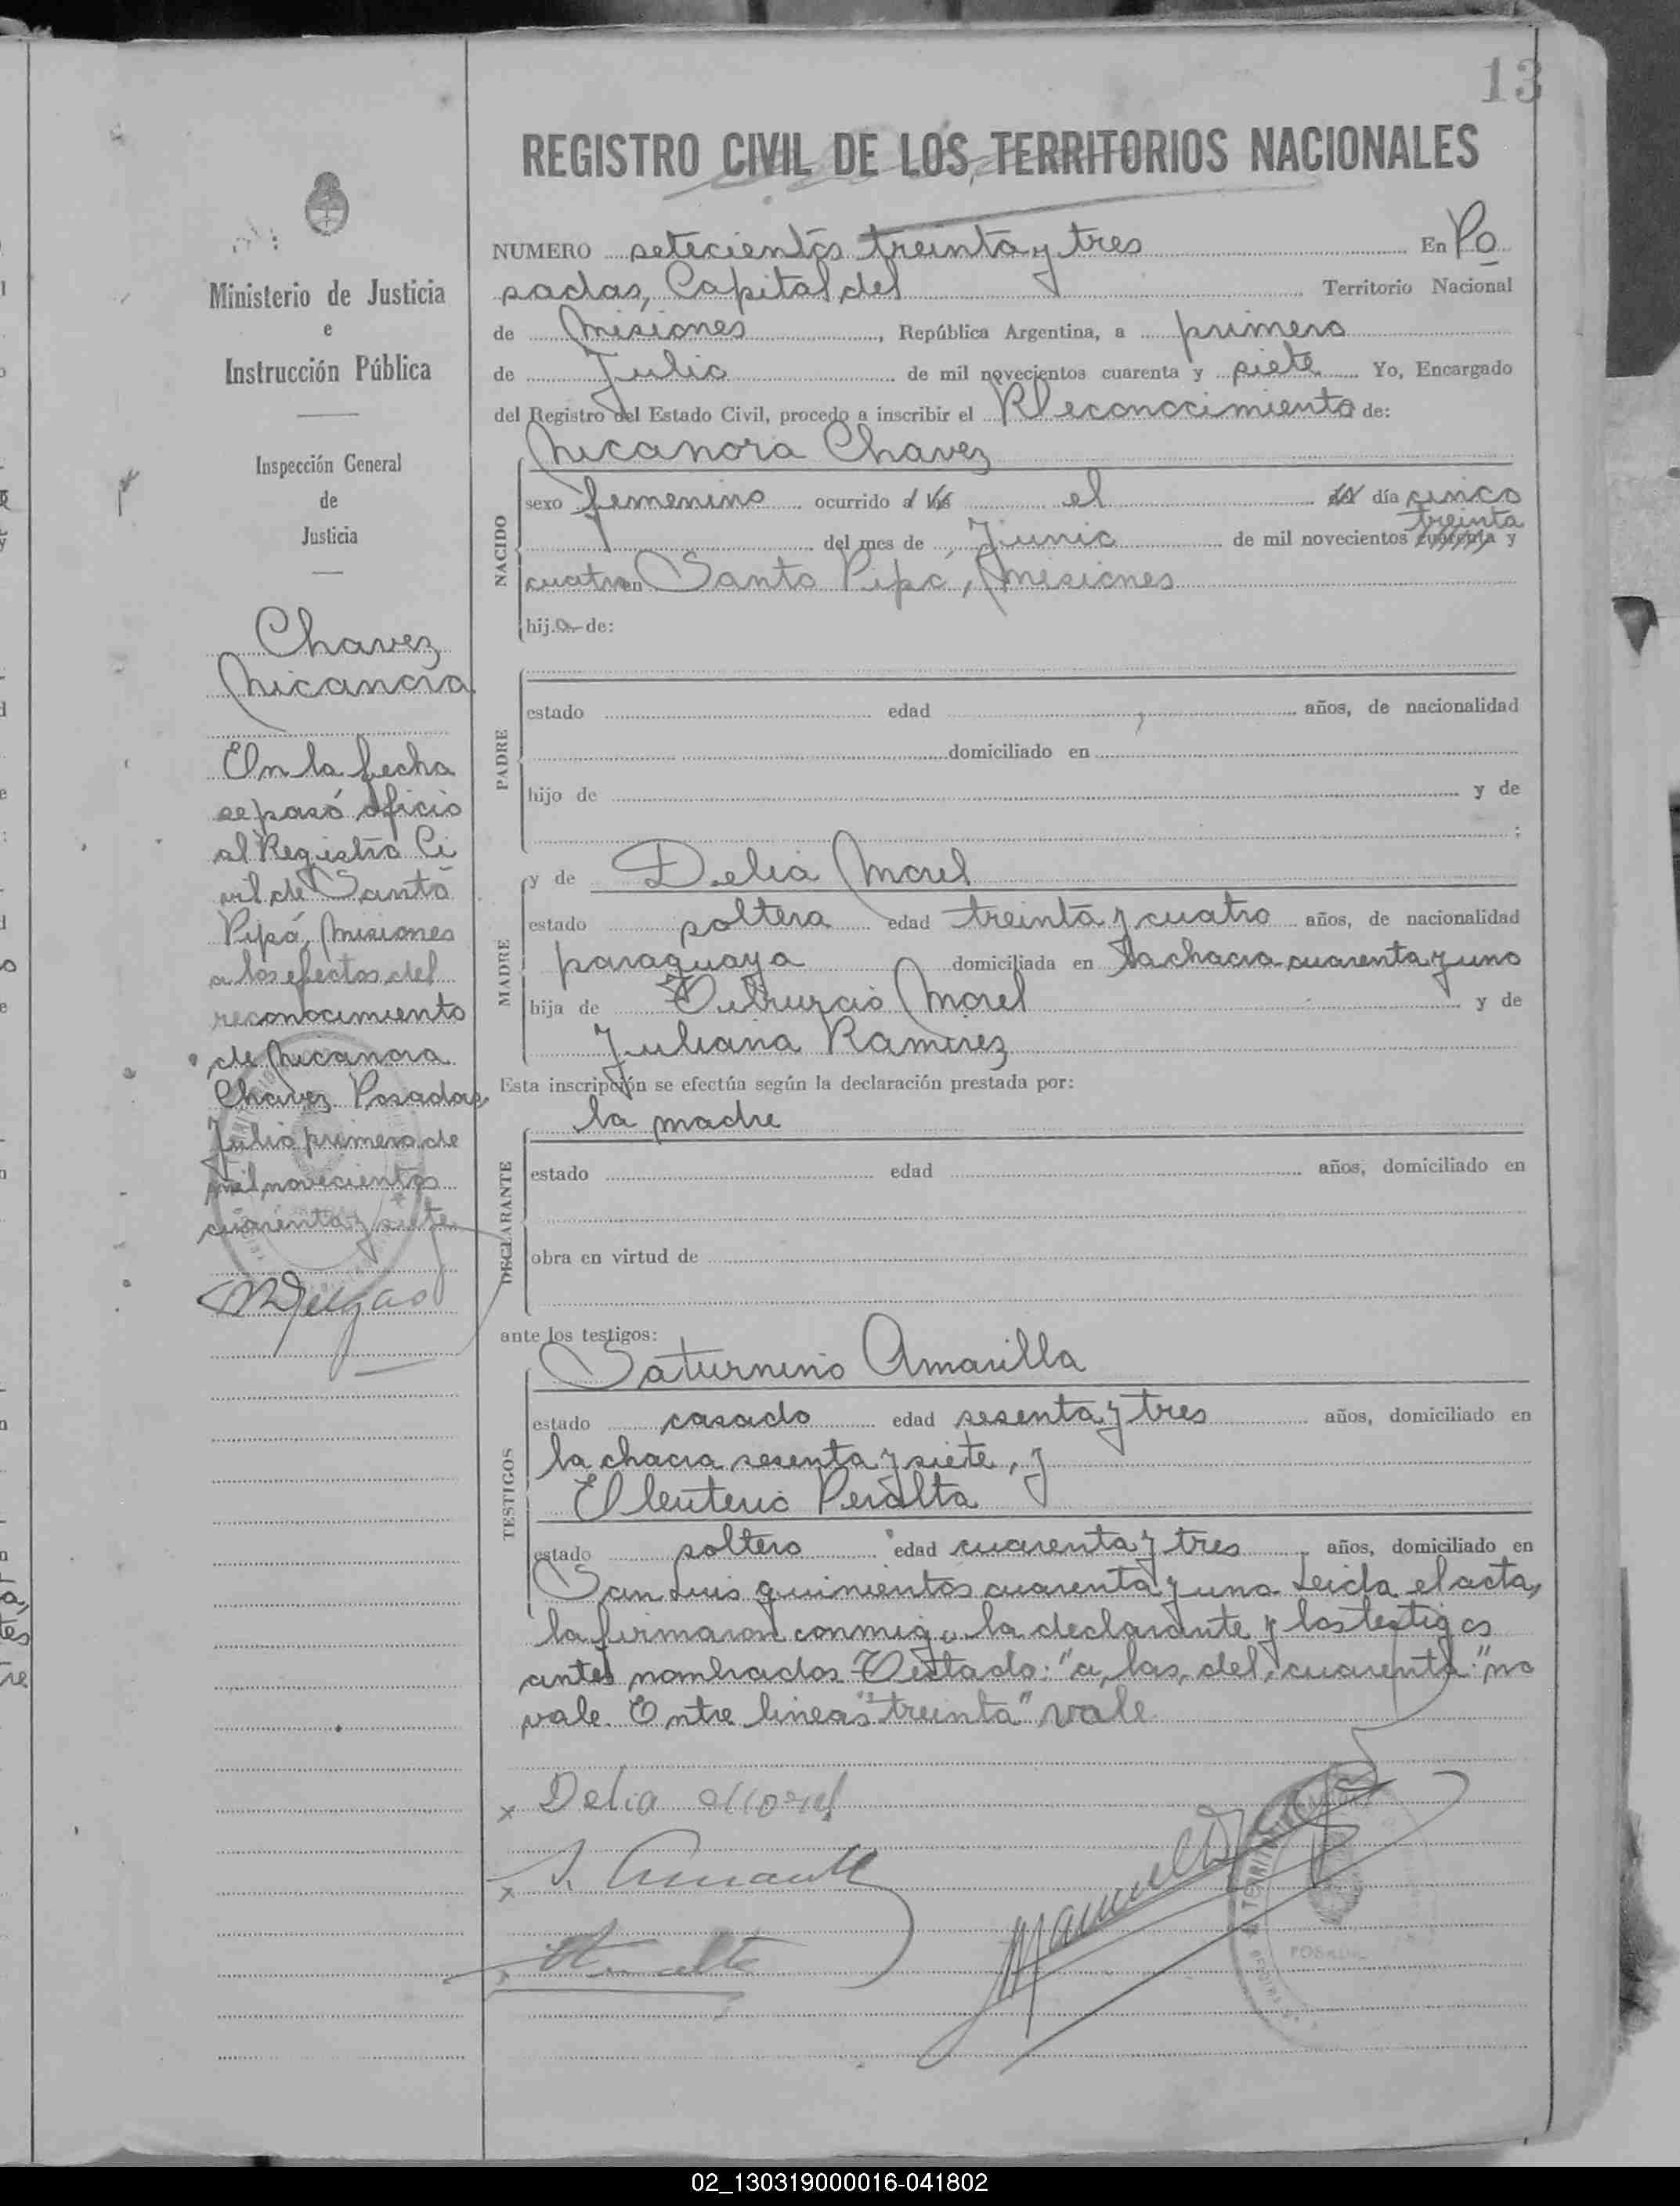 13
REGISTRO CIVIL DE LOS TERRITORIOS NACIONALES
NUMERO setecientos treinta y tres En Po
sadas, Capital del Territorio Nacional
de Misiones, República Argentina, a primero
de Julio de mil novecientos cuarenta y siete Yo, Encargado
del Registro del Estado Civil, procedo a inscribir el Reconocimiento de:
Nicanora Chavez
NACIDO
sexo femenino ocurrido a las el del día cinco
treinta
del mes de Junio de mil novecientos cuarenta y
cuatro en Santo Pipó, Misiones
hija de:
PADRE
estado edad años, de nacionalidad
domiciliado en
hijo de y de
;
MADRE
y de Delia Morel
estado soltera edad treinta y cuatro años, de nacionalidad
paraguaya domiciliada en la chacra cuarenta y uno
hija de Morel y de
Juliana Ramirez
Esta inscripción se efectúa según la declaración prestada por:
la madre
DECLARANTE
estado edad años, domiciliado en
obra en virtud de
ante los testigos:
Saturnino Amarilla
TESTIGOS
estado casado edad sesenta y tres años, domiciliado en
la chacra sesenta y siete, y
Eleuterio Peralta
estado soltero edad cuarenta y tres años, domiciliado en
San Luis quinientos cuarenta y uno. Leida el acta,
la firmaron conmigo la declarante y los testigos
antes nombrados. Testado: "a, las, del, cuarenta:" no
vale. Entre lineas "treinta" vale
Delia Morel
Ministerio de Justicia
e
Instrucción Pública
Inspección General
de
Justicia
Chavez
Nicanora
En la fecha
se pasó oficio
al Registro Ci
vil de Santo
Pipó, Misiones
a los efectos del
reconocimiento
de Nicanora
Chavez. Posadas
Julio primero de
mil novecientos
cuarenta y siete
02_130319000016-041802